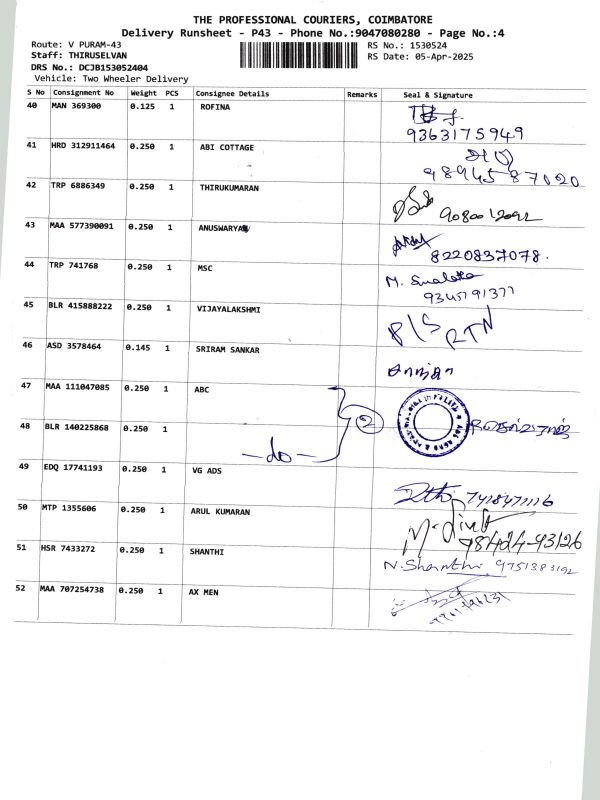 THE PROFESSIONAL COURIERS, COIMBATORE
Delivery Runsheet - P43 - Phone No.:9047080280 - Page No.:4
Route: V PURAM-43 RS No.: 1530524
Staff: THIRUSELVAN RS Date: 05-Apr-2025
DRS No.: DCJB153052404
Vehicle: Two Wheeler Delivery
S No Consignment No Weight PCS Consignee Details Remarks Seal & Signature
40 MAN 369300 0.125 1 ROFINA
9363175949
41 HRD 312911464 0.250 1 ABI COTTAGE
98945 87020
42 TRP 6886349 0.250 1 THIRUKUMARAN
43 MAA 577390091 0.250 1 ANUSWARYA
8220837078.
44 TRP 741768 0.250 1 MSC
45 BLR 415888222 0.250 1 VIJAYALAKSHMI
P/S RTN
46 ASD 3578464 0.145 1 SRIRAM SANKAR
47 MAA 111047085 0.250 1 ABC
2
48 BLR 140225868 0.250 1
-do-
49 EDQ 17741193 0.250 1 VG ADS
50 MTP 1355606 0.250 1 ARUL KUMARAN
98424-93126
51 HSR 7433272 0.250 1 SHANTHI
N. Shanthi 9751383192
52 MAA 707254738 0.250 1 AX MEN